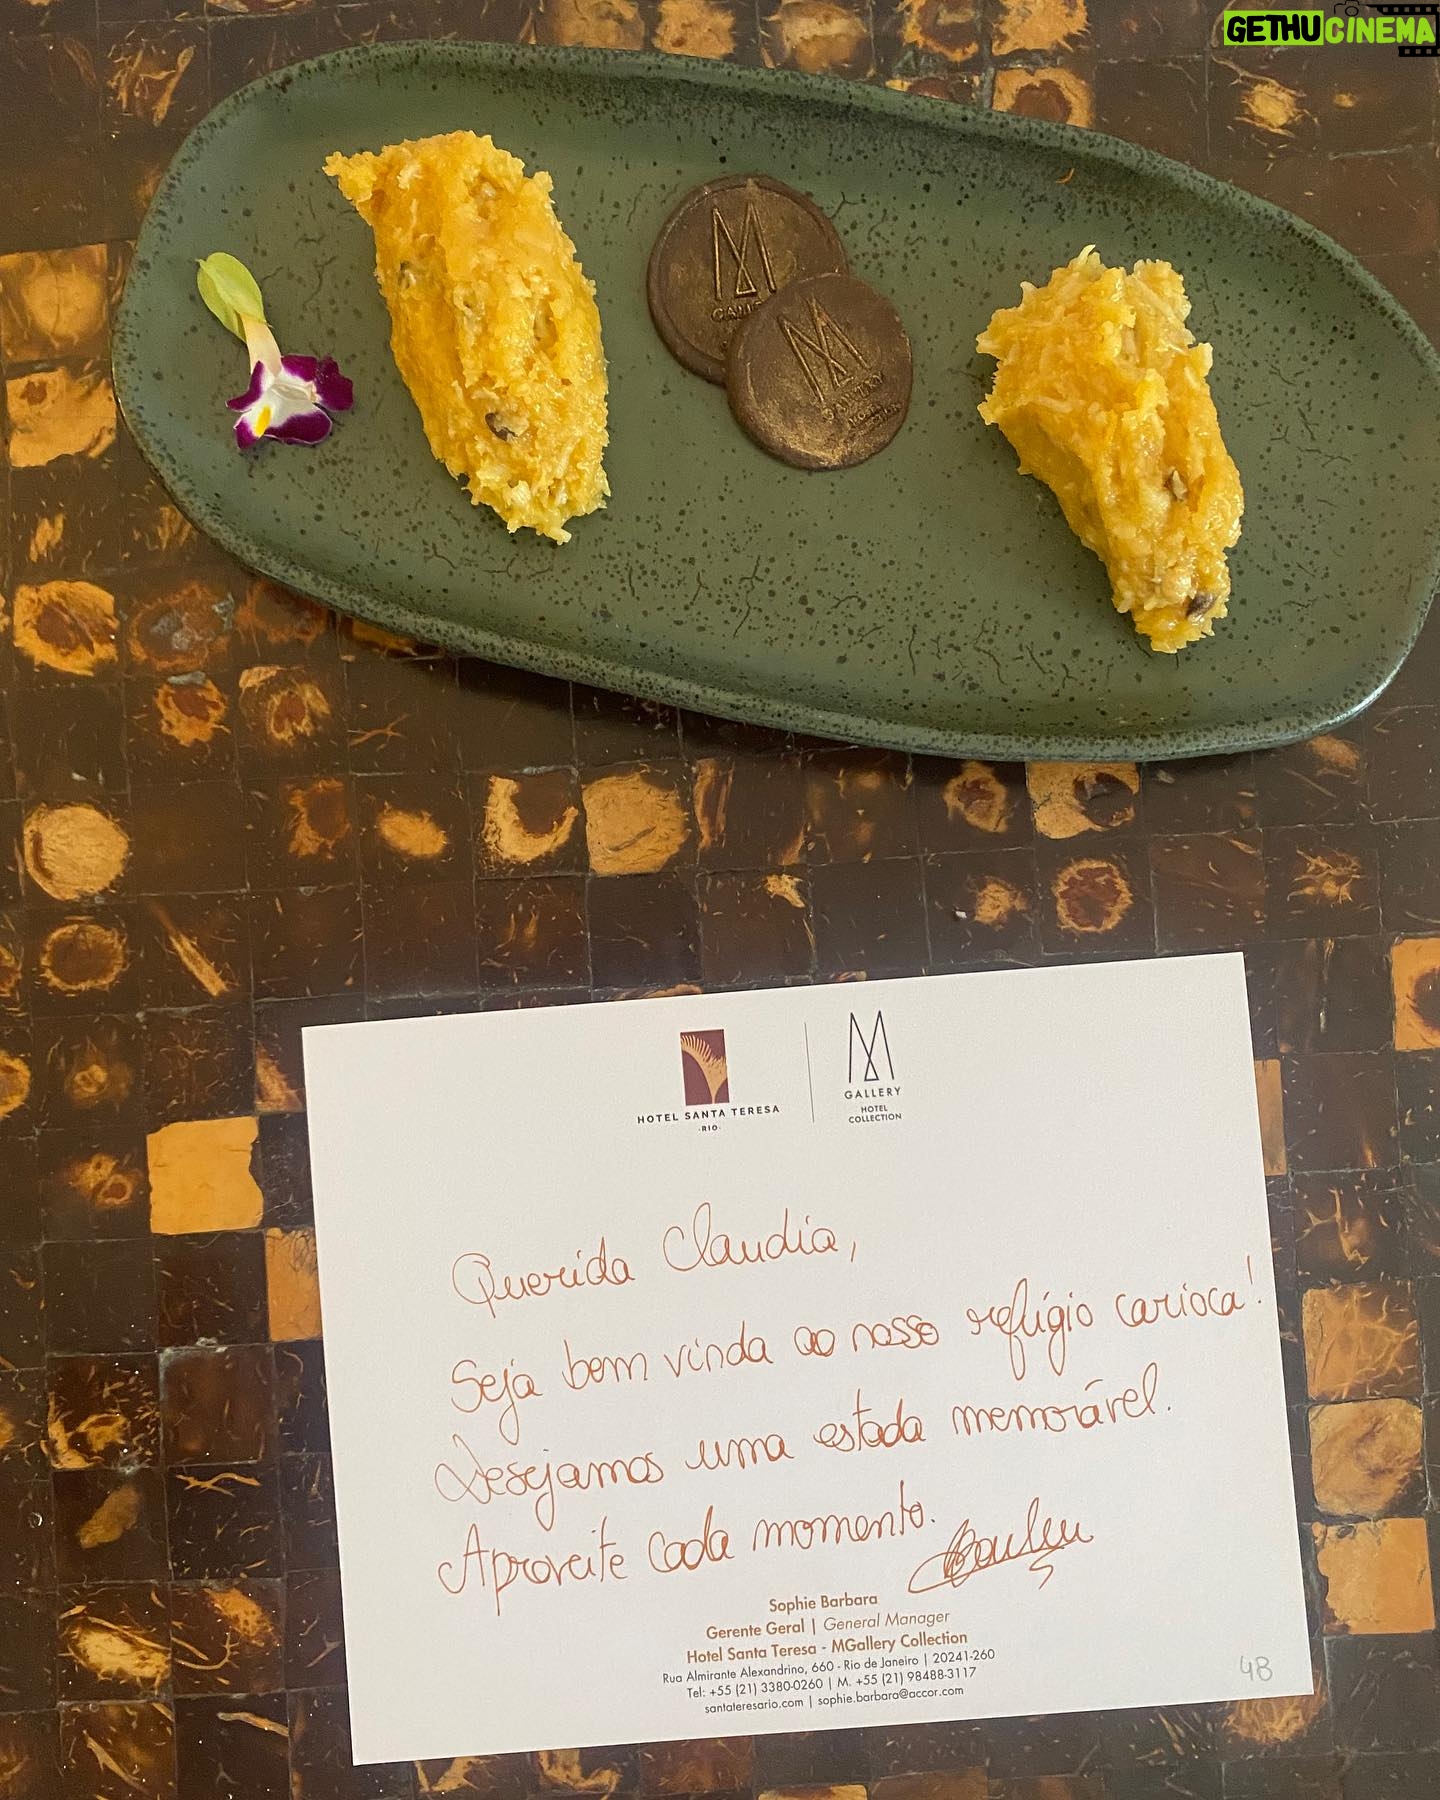 GETHUCINEMA
M
M
GALLERY
HOTEL SANTA TERESA
·RIO·
M
GALLERY
HOTEL
COLLECTION
Querida Claudia,
Seja bem vinda ao nosso refúgio carioca!
Desejamos uma estada memorável.
Aproveite cada momento.
Sophie Barbara
Gerente Geral | General Manager
Hotel Santa Teresa - MGallery Collection
Rua Almirante Alexandrino, 660 - Rio de Janeiro | 20241-260
Tel: +55 (21) 3380-0260 | M. +55 (21) 98488-3117
santateresario.com | sophie.barbara@accor.com
48